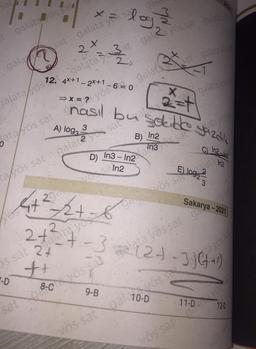 x = log₂ 3/2
2^x = 3/2
12. 4^x+1 – 2^x+1 – 6 = 0
⇒ x = ?
2^x = t
nasıl bu şekilde
A) log₂ 3/2
B) ln2/ln3
D) ln3 – ln2/ln2
E) log₂ 2/3
Sakarya – 2021
4t² – 2t – 6
2t² – t – 3 = (2t – 3)(t+1)
2t – 3
t +1
7-D 8-C 9-B 10-D 11-D 12-D